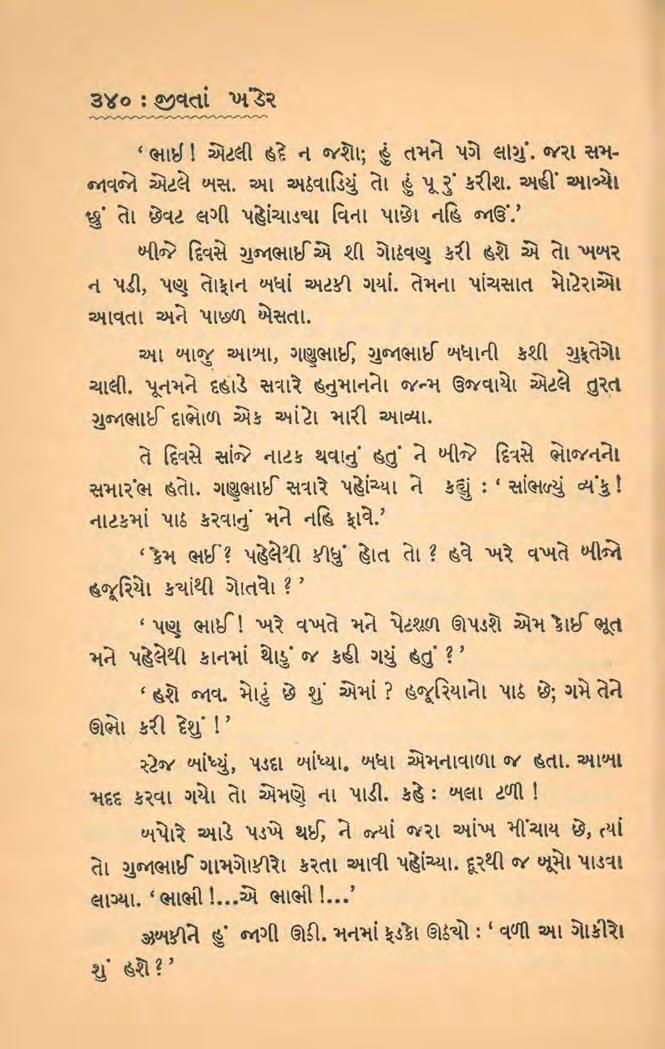 ૩૪૦ : જીવતાં ખંડેર
‘ ભાઈ ! એટલી હદે ન જશો; હું તમને પગે લાગું. જરા સમ-
જાવજો એટલે બસ. આ અઠવાડિયું તો હું પૂરું કરીશ. અહીં આવ્યો
છું તો છેવટ લગી પહોંચાડ્યા વિના પાછો નહિ જાઉં.’
બીજે દિવસે ગુજાભાઈએ શી ગોઠવણ કરી હશે એ તો ખબર
ન પડી, પણ તોફાન બધાં અટકી ગયાં. તેમના પાંચસાત મોટેરાઓ
આવતા અને પાછળ બેસતા.
આ બાજુ આબા, ગણુભાઈ, ગુજાભાઈ બધાની કશી ગુફતેગો
ચાલી. પૂનમને દહાડે સવારે હનુમાનનો જન્મ ઉજવાયો એટલે તુરત
ગુજાભાઈ દાભોળ એક આંટો મારી આવ્યા.
તે દિવસે સાંજે નાટક થવાનું હતું ને બીજે દિવસે ભોજનનો
સમારંભ હતો. ગણુભાઈ સવારે પહોંચ્યા ને કહ્યું : ‘ સાંભળ્યું વ્યંકુ !
નાટકમાં પાઠ કરવાનું મને નહિ ફાવે.’
‘ કેમ ભઈ ? પહેલેથી કીધું હોત તો ? હવે ખરે વખતે બીજો
હજૂરિયો કયાંથી ગોતવો ? ’
‘ પણ ભાઈ ! ખરે વખતે મને પેટશૂળ ઊપડશે એમ કોઈ ભૂત
મને પહેલેથી કાનમાં થોડું જ કહી ગયું હતું ? ’
‘ હશે જાવ. મોટું છે શું એમાં ? હજૂરિયાનો પાઠ છે; ગમે તેને
ઊભો કરી દેશું ! ’
સ્ટેજ બાંધ્યું, પડદા બાંધ્યા. બધા એમનાવાળા જ હતા. આબા
મદદ કરવા ગયો તો એમણે ના પાડી. કહે : બલા ટળી !
બપોરે આડે પડખે થઈ, ને જ્યાં જરા આંખ મીંચાય છે, ત્યાં
તો ગુજાભાઈ ગામગોકીરો કરતા આવી પહોંચ્યા. દૂરથી જ બૂમો પાડવા
લાગ્યા. ‘ ભાભી !...એ ભાભી !...’
ઝબકીને હું જાગી ઊઠી. મનમાં ફડકો ઊઠયો : ‘ વળી આ ગોકીરો
શું હશે ? ’